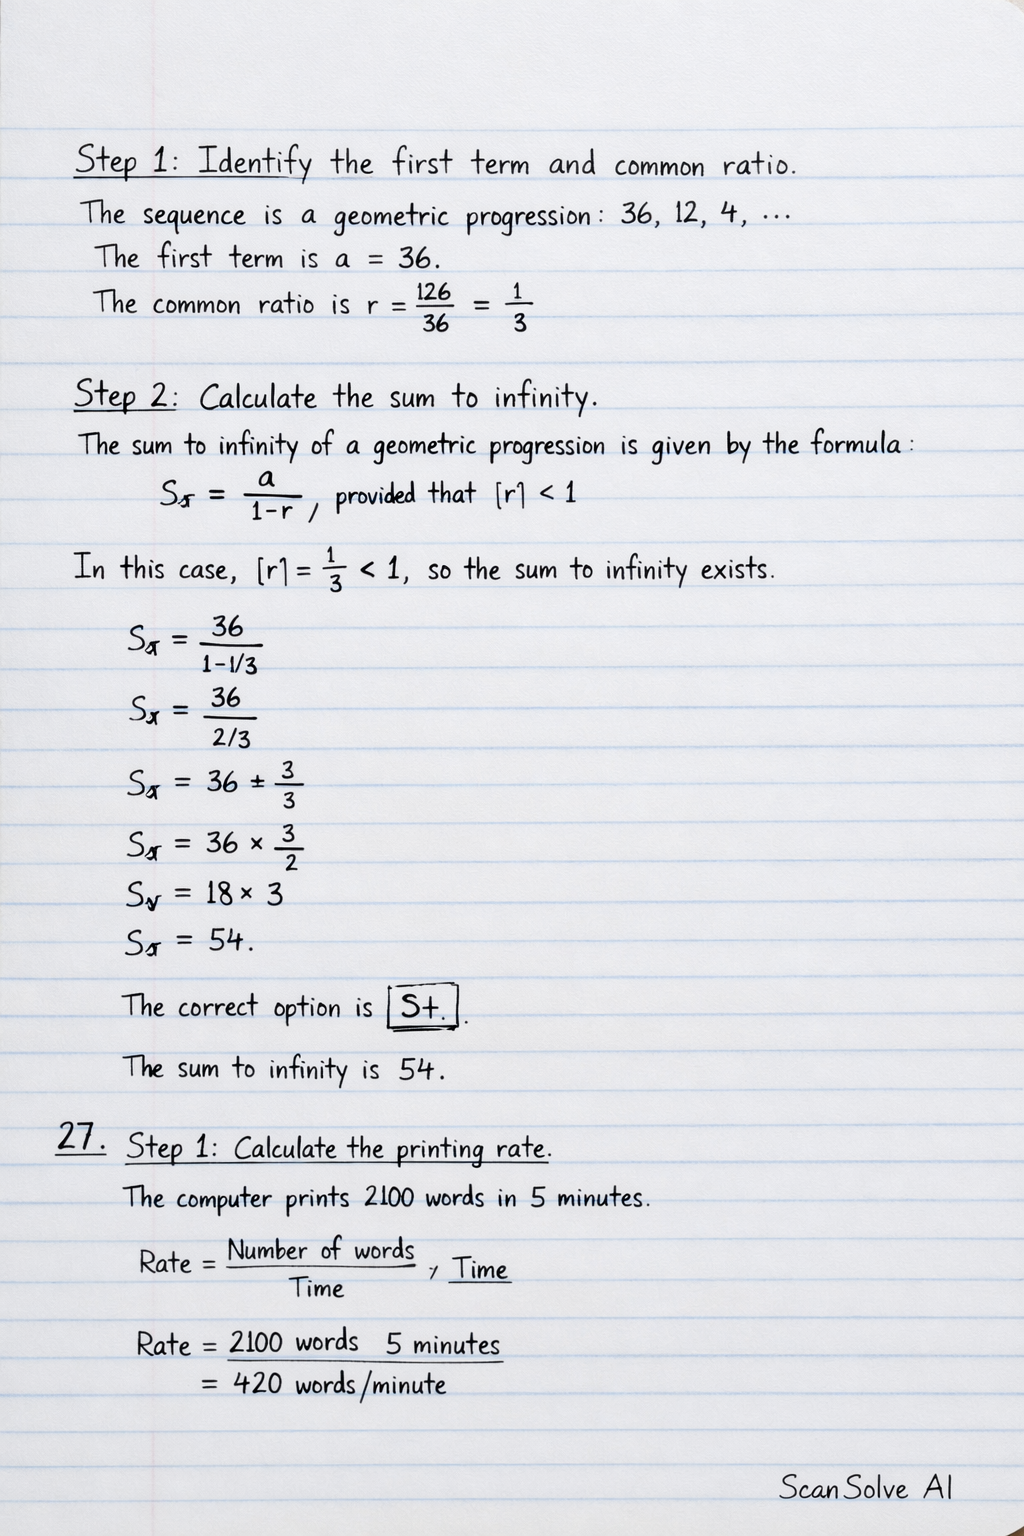 Step 1: Identify the first term and common ratio.
The sequence is a geometric progression: 36, 12, 4, ...
The first term is a = 36.
The common ratio is r = 126/36 = 1/3
Step 2: Calculate the sum to infinity.
The sum to infinity of a geometric progression is given by the formula:
S = a/1-r, provided that [r] < 1
In this case, [r] = 1/3 < 1, so the sum to infinity exists.
S = 36/1-1/3
Sx = 36/2/3
S = 36 ± 3/3
S = 36 × 3/2
S = 18 × 3
S = 54.
The correct option is St.
The sum to infinity is 54.
27. Step 1: Calculate the printing rate.
The computer prints 2100 words in 5 minutes.
Rate = Number of words/Time, Time
Rate = 2100 words 5 minutes
= 420 words/minute
ScanSolve AI